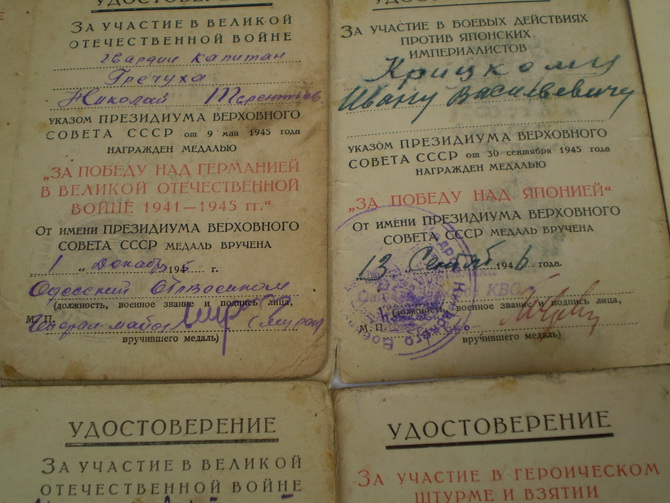 УДОСТОВЕРЕНИЕ
ЗА УЧАСТИЕ В ВЕЛИКОЙ
ОТЕЧЕСТВЕННОЙ ВОЙНЕ
гвардии капитан
Гречуха
Николай Терентьев
УКАЗОМ ПРЕЗИДИУМА ВЕРХОВНОГО
СОВЕТА СССР от 9 мая 1945 года
НАГРАЖДЕН МЕДАЛЬЮ
„ЗА ПОБЕДУ НАД ГЕРМАНИЕЙ
В ВЕЛИКОЙ ОТЕЧЕСТВЕННОЙ
ВОЙНЕ 1941—1945 гг.“
ОТ ИМЕНИ ПРЕЗИДИУМА ВЕРХОВНОГО
СОВЕТА СССР МЕДАЛЬ ВРУЧЕНА
1 " Декабр 1945 г.
Одесский
(должность, военное звание и подпись лица,
Генерал-майор
М. П.
вручившего медаль)
УДОСТОВЕРЕНИЕ
ЗА УЧАСТИЕ В БОЕВЫХ ДЕЙСТВИЯХ
ПРОТИВ ЯПОНСКИХ
ИМПЕРИАЛИСТОВ
Крицкому
Ивану Васильевичу
УКАЗОМ ПРЕЗИДИУМА ВЕРХОВНОГО
СОВЕТА СССР от 30 сентября 1945 года
НАГРАЖДЕН МЕДАЛЬЮ
„ЗА ПОБЕДУ НАД ЯПОНИЕЙ“
ОТ ИМЕНИ ПРЕЗИДИУМА ВЕРХОВНОГО
СОВЕТА СССР МЕДАЛЬ ВРУЧЕНА
13 Сентяб 1946 года.
КВО
(должность, военное звание и подпись лица,
М. П.
вручившего медаль)
УДОСТОВЕРЕНИЕ
ЗА УЧАСТИЕ В ВЕЛИКОЙ
ОТЕЧЕСТВЕННОЙ ВОЙНЕ
УДОСТОВЕРЕНИЕ
ЗА УЧАСТИЕ В ГЕРОИЧЕСКОМ
ШТУРМЕ И ВЗЯТИИ